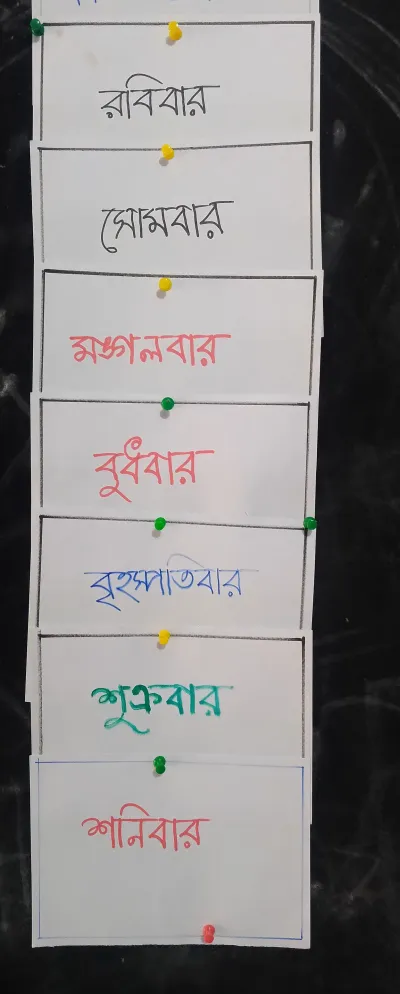 রবিবার
সোমবার
মঙ্গলবার
বুধবার
বৃহস্পতিবার
শুক্রবার
শনিবার